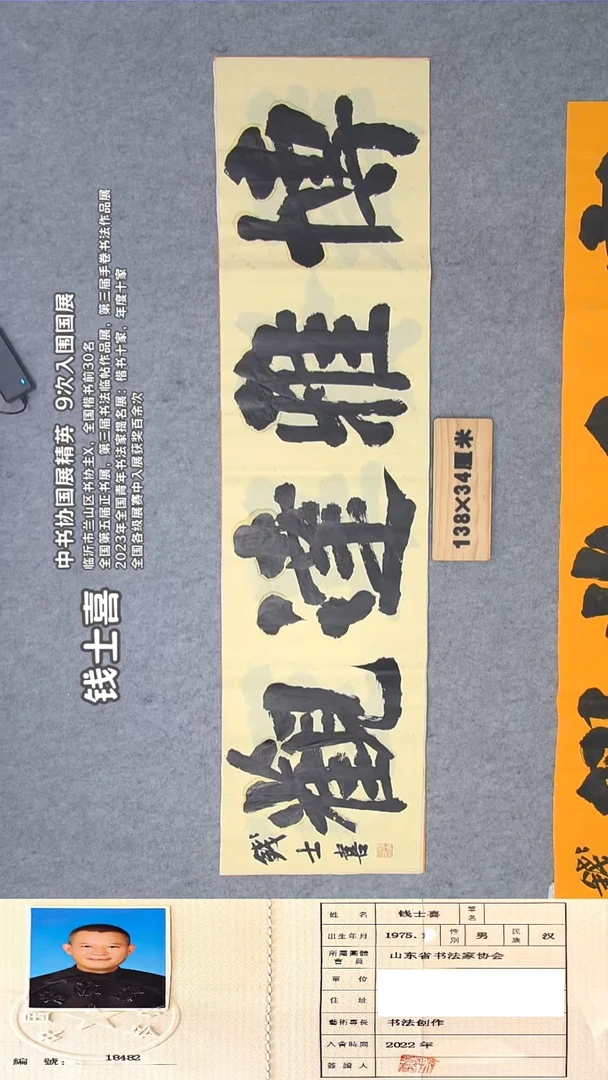 钱士喜
中书协国展精英 9次入围国展
临沂市兰山区书协主X，全国楷书前30名
全国第五届正书展，第三届书法临帖作品展，第三届手卷书法作品展
2023年全国青年书法家提名展：楷书十家，年度十家
全国各级展赛中入展获奖百余次
博雅達觀
錢士喜
138×34厘米
編 號： 18482
姓 名 钱士喜 筆名
出生年月 1975.1 性別 男 民族 汉
所屬團體會員 山东省书法家协会
單 位
住 址
藝術專長 书法创作
入會時間 2022 年
簽證人